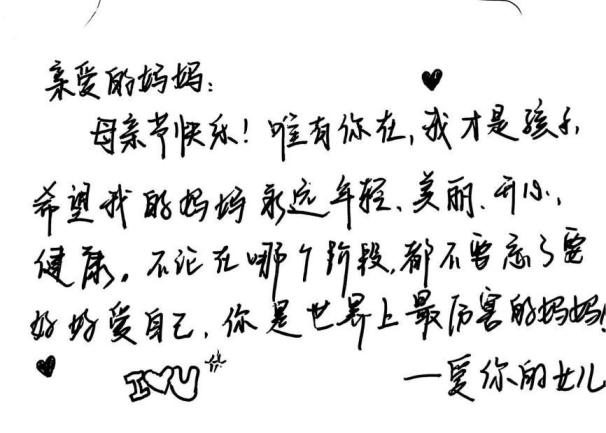 亲爱的妈妈：
母亲节快乐！唯有你在，我才是孩子，
希望我的妈妈永远年轻、美丽、开心、
健康。不论在哪个阶段，都不要忘了要
好好爱自己，你是世界上最厉害的妈妈！
I♥U
—爱你的女儿